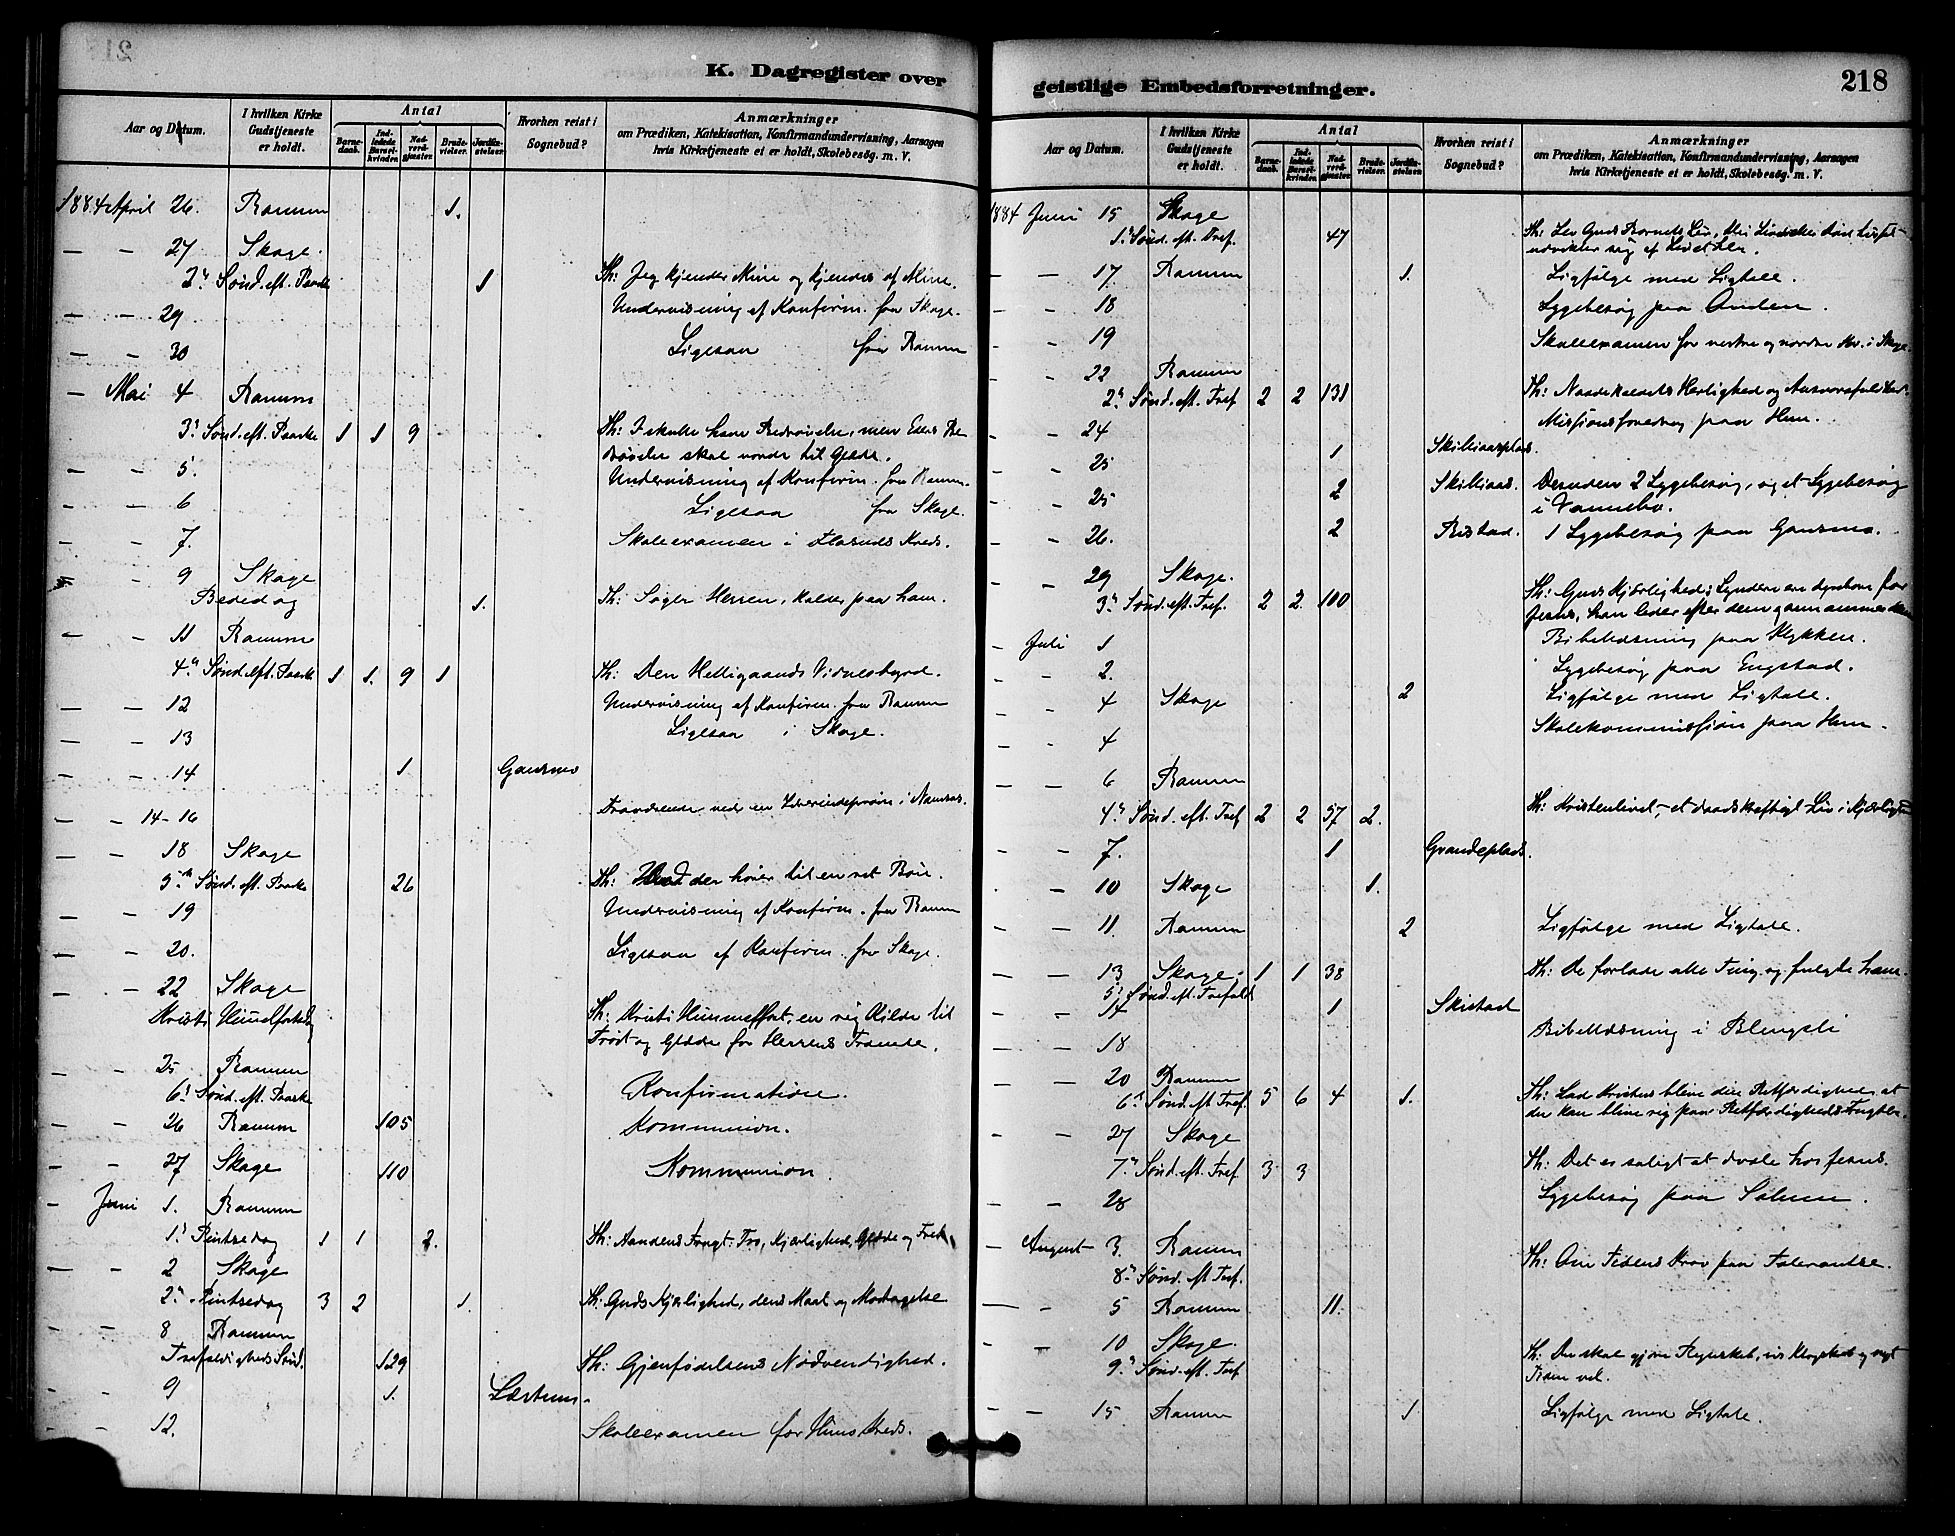 K. Dagregister over
Aar og Datum.
I hvilken Kirke Gudstjeneste er holdt.
Antal
Barnedaab.
Indledede Barselkvinder.
Nadverdgjæster.
Brudevielser.
Jordfæstelser.
Hvorhen reist i Sognebud?
Anmærkninger
om Prædiken, Katekisation, Konfirmandundervisning, Aarsagen
hvis Kirketjeneste ei er holdt, Skolebesøg. m. V.
1884 April 26. Ranum 1.
— — 27 Skage.
2den Sønd. eft. Paaske 1 Th: Jeg kjender Mine og kjendes af Mine.
— — 29 Undervisning af Konfirm. fra Skage.
— — 30 Ligesaa fra Ranum
— Mai 4 Ranum
3die Sønd. eft. Paaske 1 1 9 Th: I skulle have Bedrøvelse, men Eders Be
drøvelse skal vorde til Glæde.
— — 5. Undervisning af Konfirm. fra Ranum.
— — 6 Ligesaa fra Skage.
— — 7. Skoleexamen i Kreds.
— 9 Skage
Bededag 1. Th: Søger Herren, kalder paa ham.
— — 11 Ranum
4de Sønd. eft. Paaske 1 1. 9 1 Th: Den Helligaands Vidnesbyrd.
— — 12 Undervisning af Konfirm. fra Ranum
— — 13 Ligesaa i Skage.
— — 14 1 Gansmo
— — 14-16 Fraværende ved en i Namsos.
— — 18 Skage
5te Sønd. eft. Paaske 26 Th: Hvad der hører til en ret Bøn.
— — 19 Undervisning af Konfirm. fra Ranum
— — 20. Ligesaa af Konfirm. fra Skage.
— — 22 Skage
Kristi Himmelfartsdag Th: Kristi Himmelfart, en rig Kilde til
Trøst og Glæde for Herrens Fromme.
— — 25 Ranum
6te Sønd. eft. Paaske Konfirmation.
— — 26 Ranum 105 Kommunion.
— — 27 Skage 110 Kommunion
— Juni 1. Ranum
1ste Pintsedag 1 1 2. Th: Aandens Frugt: Tro, Kjærlighed, Glæde og Fred.
— — 2 Skage
2den Pintsedag 3 2 1. Th: Guds Kjærlighed, dens Maal og Modtagelse
— — 8 Ranum
Trefoldigheds Sønd. 129 Th: Gjenfødelsens Nødvendighed.
— — 9 1.
— — 12. Skoleexamen for Huns Kreds.
geistlige Embedsforretninger.
218
Aar og Datum.
I hvilken Kirke Gudstjeneste er holdt.
Antal
Barnedaab.
Indledede Barselkvinder.
Nadverdgjæster.
Brudevielser.
Jordfæstelser.
Hvorhen reist i Sognebud?
Anmærkninger
om Prædiken, Katekisation, Konfirmandundervisning, Aarsagen
hvis Kirketjeneste ei er holdt, Skolebesøg. m. V.
1884 Juni 15 Skage
1ste Sønd. eft. Tref. 47
— — 17. Ranum 1. Ligfølge med Ligtale.
— — 18 Sygebesøg paa
— — 19 Skoleexamen for vestre og nordre Kr. i Skage.
— 22 Ranum
2den Sønd. eft. Tref 2 2 131 Th: Naadekaldets Herlighed og
— — 24 Missionsforedrag paa Hun.
— — 25 1 Skilliaasplads.
— — 25 2 Skilliaas. Desuden 2 Sygebesøg, og et Sygebesøg
i Vannebo.
— — 26. 2 Ristad. 1 Sygebesøg paa Gansmo.
— — 29 Skage.
3die Sønd. eft. Tref. 2 2. 100 Th: Guds Kjærlighed; Syndere ere dyrebare for
Jesus, han leder efter dem
— Juli 1 Bibellæsning paa Klykken.
— — 2. Sygebesøg paa Engstad.
— — 4 Skage 2 Ligfølge med Ligtale.
— — 4 Skolekommission paa Hun.
— — 6 Ranum
4de Sønd. eft. Tref 2 2 57 2. Th: Kristenlivet, et daadskraftigt Liv i Kjærlighed
— — 7. 1 Grandeplads.
— 10 Skage 1.
— — 11. Ranum 2 Ligfølge med Ligtale.
— — 13 Skage 1 1 38 Th: De forlode alle Ting og fulgte ham.
5te Sønd. eft. Trefoldh
— — 14 1 Skistad
— — 18 Bibellæsning i Blengsli
— — 20 Ranum
6te Sønd. eft. Tref. 5 6 4 1. Th: Lad Kristus blive din Retfærdighed, at
du kan blive rig paa Retfærdigheds Frugter.
— — 27 Skage
7de Sønd. eft. Tref 3 3 Th: Det er saligt at dvæle hos Jesus.
— — 28 Sygebesøg paa Solum.
— August 3. Ranum
8de Sønd. eft Tref. Th: Om Tidens Krav paa Tolerantse.
— — 5 Ranum 11.
— — 10 Skage.
9de Sønd. eft. Tref
— — 15 Ranum 1 Ligfølge med Ligtale.